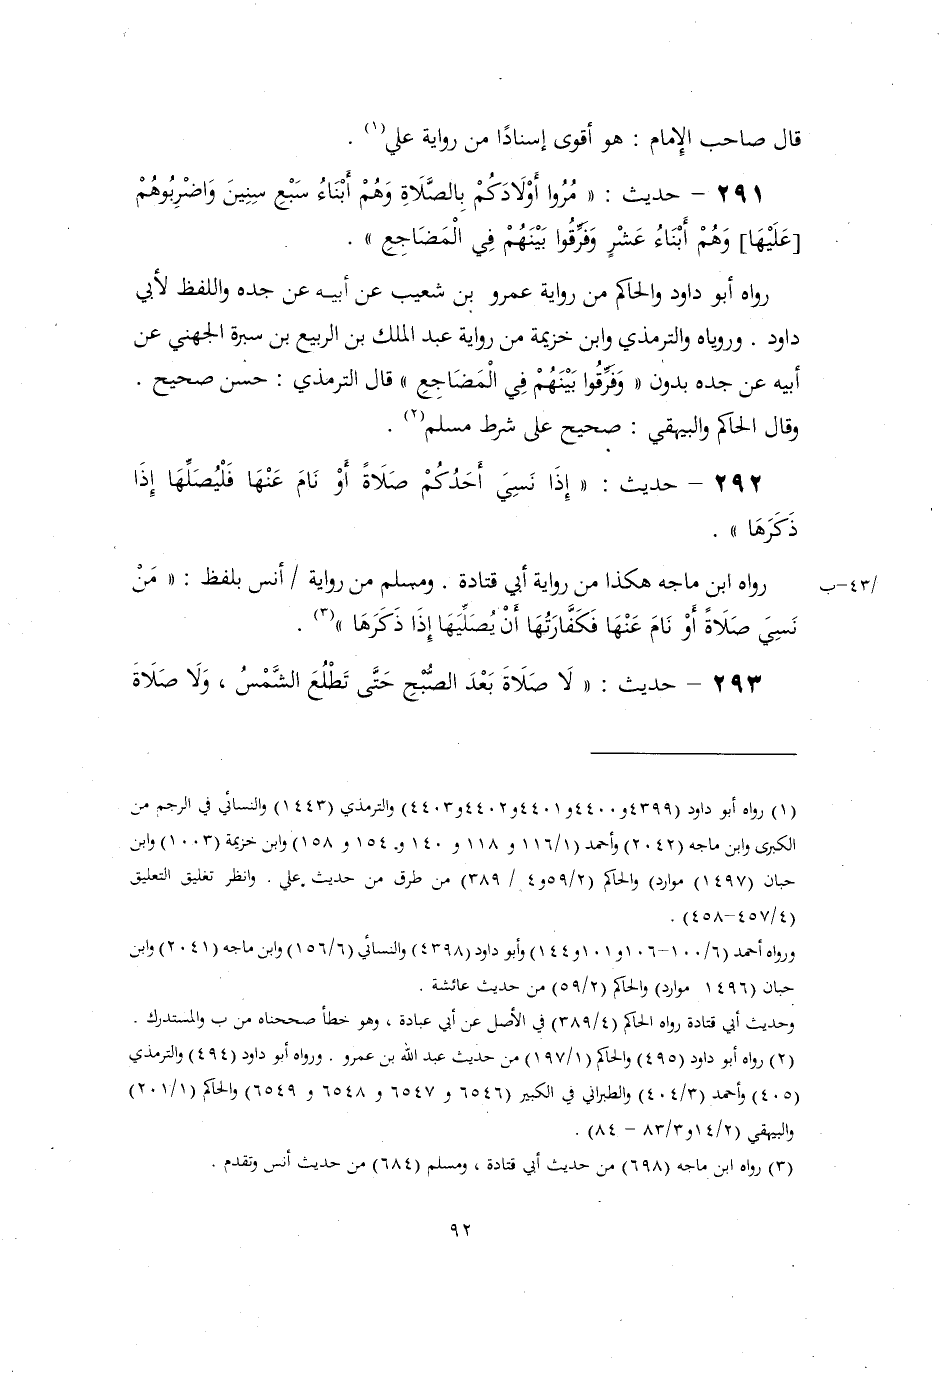 قال صاحب الإمام : هو أقوى إسنادًا من رواية علي(١) .
٢٩١ – حديث : « مُرُوا أَوْلَادَكُمْ بِالصَّلَاةِ وَهُمْ أَبْنَاءُ سَبْعِ سِنِينَ وَاضْرِبُوهُمْ
[عَلَيْهَا] وَهُمْ أَبْنَاءُ عَشْرٍ وَفَرِّقُوا بَيْنَهُمْ فِي الْمَضَاجِعِ » .
رواه أبو داود والحاكم من رواية عمرو بن شعيب عن أبيه عن جده واللفظ لأبي
داود . وروياه والترمذي وابن خزيمة من رواية عبد الملك بن الربيع بن سبرة الجهني عن
أبيه عن جده بدون « وَفَرِّقُوا بَيْنَهُمْ فِي الْمَضَاجِعِ » قال الترمذي : حسن صحيح .
وقال الحاكم والبيهقي : صحيح على شرط مسلم(٢) .
٢٩٢ – حديث : « إِذَا نَسِيَ أَحَدُكُمْ صَلَاةً أَوْ نَامَ عَنْهَا فَلْيُصَلِّهَا إِذَا
ذَكَرَهَا » .
رواه ابن ماجه هكذا من رواية أبي قتادة . ومسلم من رواية / أنس بلفظ : « مَنْ
/٤٣–ب
نَسِيَ صَلَاةً أَوْ نَامَ عَنْهَا فَكَفَّارَتُهَا أَنْ يُصَلِّيَهَا إِذَا ذَكَرَهَا »(٣) .
٢٩٣ – حديث : « لَا صَلَاةَ بَعْدَ الصُّبْحِ حَتَّى تَطْلُعَ الشَّمْسُ ، وَلَا صَلَاةَ
(١) رواه أبو داود (٤٣٩٩و٤٤٠٠و٤٤٠١و٤٤٠٢و٤٤٠٣) والترمذي (١٤٤٣) والنسائي في الرجم من
الكبرى وابن ماجه (٢٠٤٢) وأحمد (١١٦/١ و ١١٨ و ١٤٠ و ١٥٤ و ١٥٨) وابن خزيمة (١٠٠٣) وابن
حبان (١٤٩٧) موارد) والحاكم (٥٩/٢و٤ / ٣٨٩) من طرق من حديث علي . وانظر تغليق التعليق
(٤٥٧/٤–٤٥٨) .
ورواه أحمد (١٠٠/٦–١٠٦و١٠١و١٤٤) وأبو داود (٤٣٩٨) والنسائي (١٥٦/٦) وابن ماجه (٢٠٤١) وابن
حبان (١٤٩٦ موارد) والحاكم (٥٩/٢) من حديث عائشة .
وحديث أبي قتادة رواه الحاكم (٣٨٩/٤) في الأصل عن أبي عبادة ، وهو خطأ صححناه من ب والمستدرك .
(٢) رواه أبو داود (٤٩٥) والحاكم (١٩٧/١) من حديث عبد الله بن عمرو . ورواه أبو داود (٤٩٤) والترمذي
(٤٠٥) وأحمد (٤٠٤/٣) والطبراني في الكبير (٦٥٤٦ و ٦٥٤٧ و ٦٥٤٨ و ٦٥٤٩) والحاكم (٢٠١/١)
والبيهقي (١٤/٢و٨٣/٣ – ٨٤) .
(٣) رواه ابن ماجه (٦٩٨) من حديث أبي قتادة ، ومسلم (٦٨٤) من حديث أنس وتقدم .
٩٢